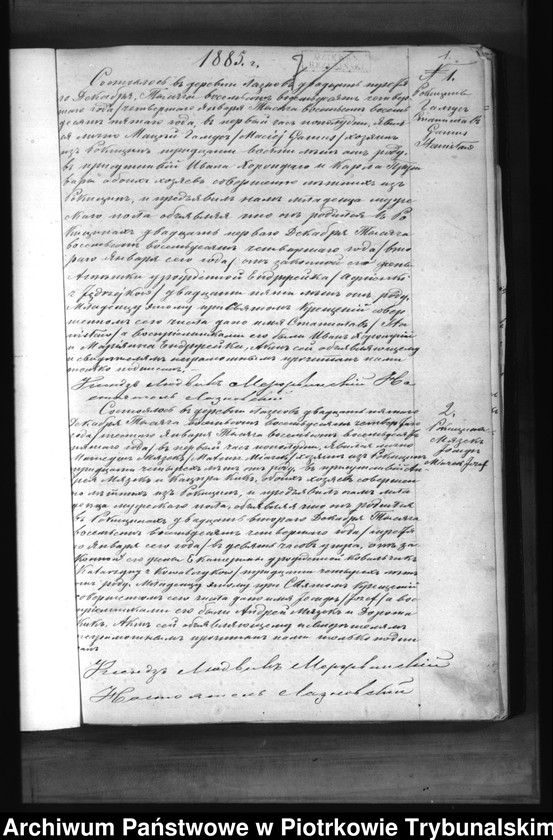 1885 г.
1.
№ 1.
Рокицины
Галусъ
Станиславъ
Galus
Stanisław
Состоялось въ деревни Лазновъ двадцать третя-
го Декабря, Тысяча восемьсотъ восемьдесятъ четвер-
таго года /четвертаго Января Тысяча восемьсотъ восемь-
десятъ пятаго года, въ первый часъ пополудни, явил-
ся лично Мацѣй Галусъ /Maciej Galus/, хозяинъ
изъ Рокицинъ, тридцати восьми лѣтъ отъ роду,
въ присутствіи Ивана и Карла
обоихъ хозяевъ совершеннолѣтнихъ изъ
Рокицинъ, и предъявилъ намъ младенца муже-
скаго пола объявляя что онъ родился въ Ро-
кицинахъ двадцать перваго Декабря Тысяча
восемьсотъ восемьдесятъ четвертаго года /вто-
раго Января сего года/ отъ законной его жены
Агнешки урожденной Ендрейка /Agnieszki
двадцати пяти лѣтъ отъ роду.
Младенцу этому при Святомъ Крещеніи совер-
шенномъ сего числа дано имя Станиславъ /Sta-
nisław/ а воспріемниками его были Иванъ
и Марьянна Ендрейка. Актъ сей объявляющему
и свидѣтелямъ неграмотнымъ прочитанъ нами
только подписанъ.
Ксендзъ Людвикъ На-
стоятель Лазновскій
2.
Рокицины
Мязекъ
Іозефъ
Miazek Józef
Состоялось въ деревни Лазновъ двадцать пятаго
Декабря Тысяча восемьсотъ восемьдесятъ четвертаго
года /шестаго Января Тысяча восемьсотъ восемьдесятъ
пятаго года/ въ первый часъ пополудни, явился лично
Матеушъ Мязекъ /Mateusz Miazek/ хозяинъ изъ Рокицинъ
тридцати четырехъ лѣтъ отъ роду, въ присутствіи Анд-
рея Мязекъ и Кацпра Кикъ, обоихъ хозяевъ совершен-
нолѣтнихъ изъ Рокицинъ, и предъявилъ намъ мла-
денца мужескаго пола, объявляя что онъ родился
въ Рокицинахъ двадцать втораго Декабря Тысяча
восемьсотъ восемьдесятъ четвертаго года /третья-
го Января сего года/ въ девять часовъ утра, отъ за-
конной его жены Екатерины урожденной Ковальчикъ
Katarzyny z Kowalczyków/ тридцати четырехъ лѣтъ
отъ роду. Младенцу этому при Святомъ Крещеніи
совершенномъ сего числа дано имя Іозефъ /Józef/ а вос-
пріемниками его были Андрей Мязекъ и Дорота
Кикъ. Актъ сей объявляющему и свидѣтелямъ
неграмотнымъ прочитанъ нами только подпи-
санъ
Ксендзъ Людвикъ
Настоятель Лазновскій
Archiwum Państwowe w Piotrkowie Trybunalskim